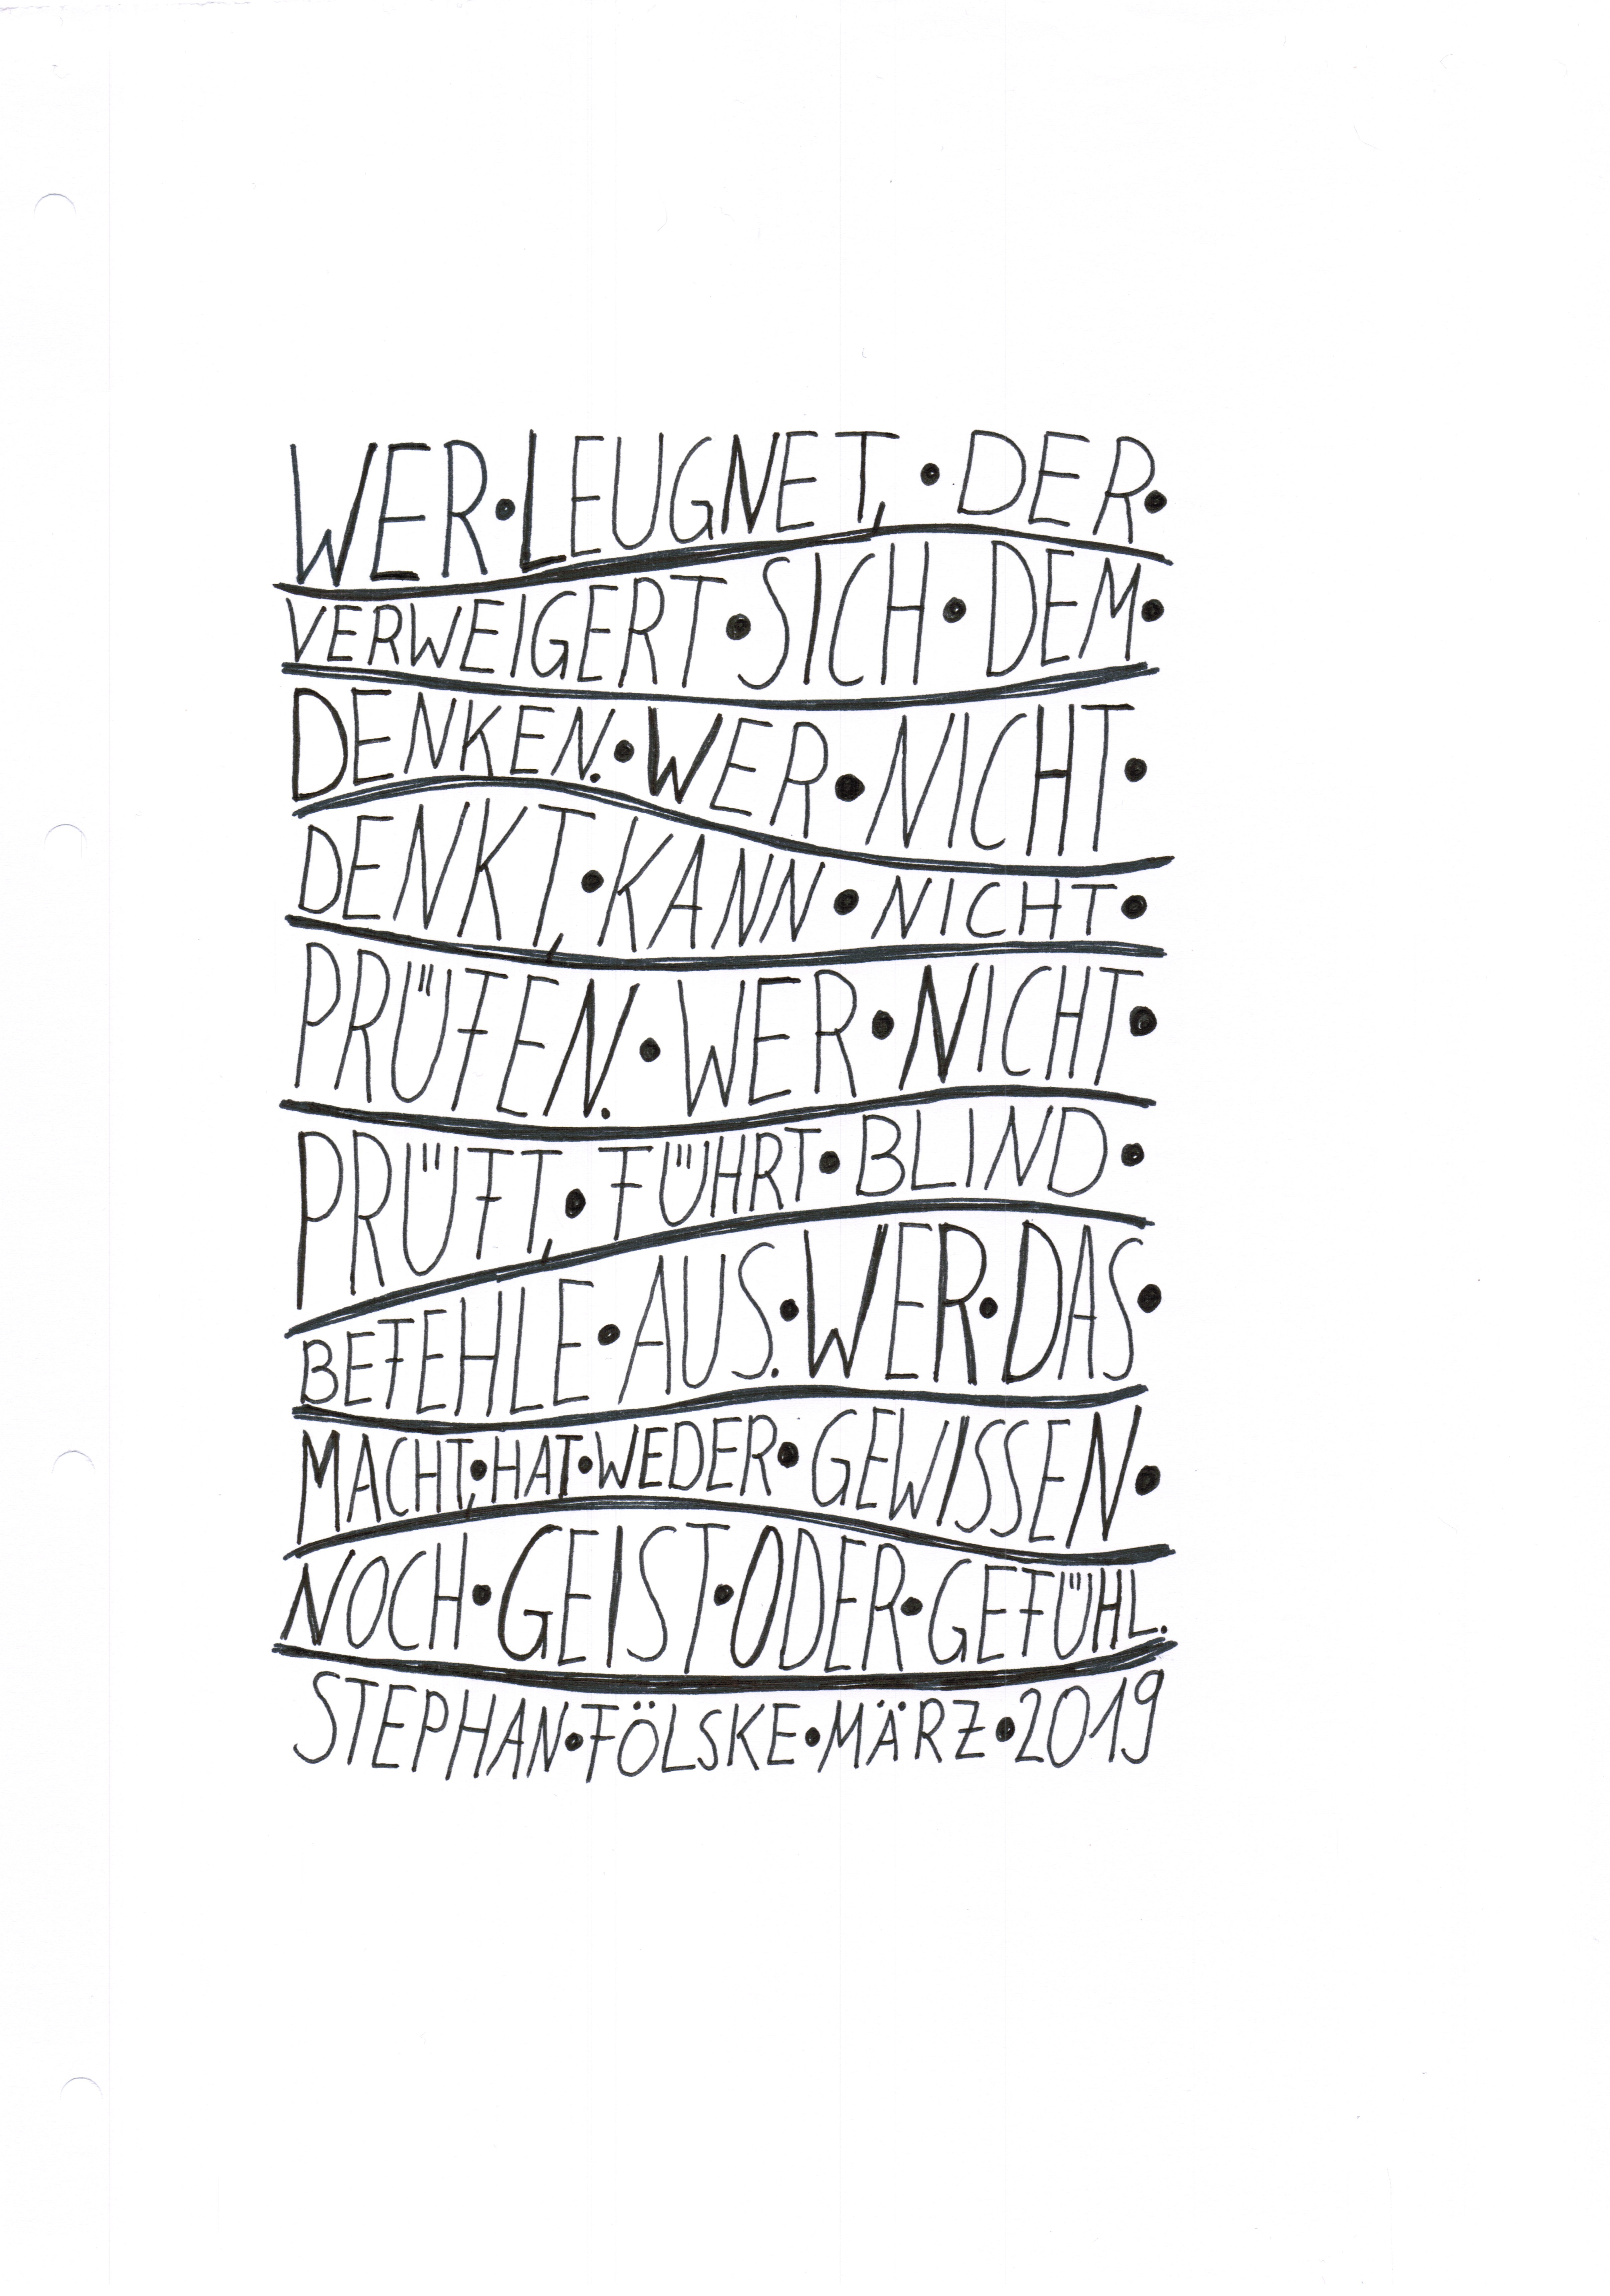 WER•LEUGNET,•DER•
VERWEIGERT•SICH•DEM•
DENKEN.•WER•NICHT•
DENKT,•KANN•NICHT•
PRÜFEN.•WER•NICHT•
PRÜFT,•FÜHRT•BLIND•
BEFEHLE•AUS.•WER•DAS•
MACHT,•HAT•WEDER•GEWISSEN•
NOCH•GEIST•ODER•GEFÜHL.
STEPHAN•FÖLSKE•MÄRZ•2019